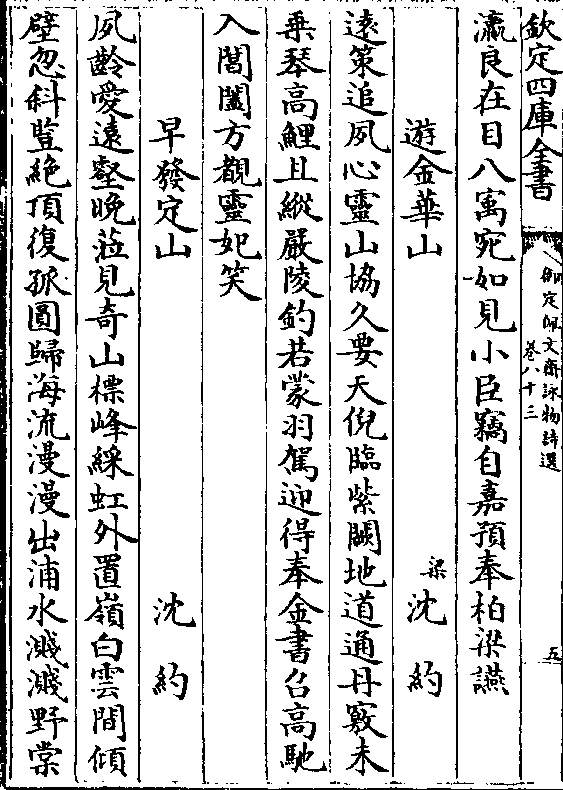 欽定四庫全書
御定佩文齋詠物詩選
卷八十三
五
瀛良在目八寓宛如見小臣竊自嘉預奉柏梁讌
遊金華山
梁沈約
遠策追夙心靈山協久要天倪臨紫闕地道通丹竅未
乗琴高鯉且縱嚴陵釣若蒙羽駕迎得奉金書召高馳
入閶闔方觀靈妃笑
早發定山
沈約
夙齡愛遠壑晚蒞見奇山標峰綵虹外置嶺白雲間傾
壁忽斜豎絶頂復孤圓歸海流漫漫出浦水濺濺野棠